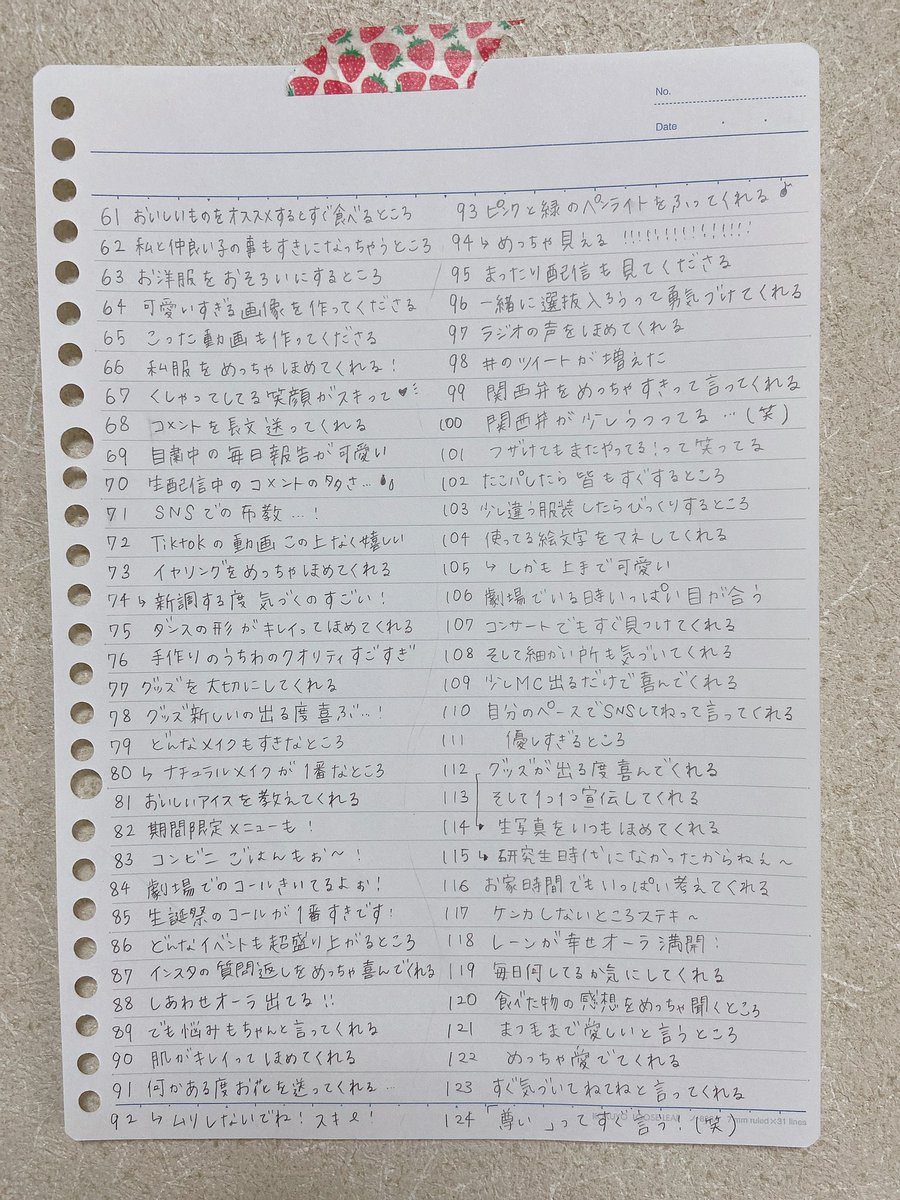 No.
Date
61 おいしいものをオススメするとすぐ食べるところ
62 私と仲良い子の事もすきになっちゃうところ
63 お洋服をおそろいにするところ
64 可愛いすぎる画像を作ってくださる
65 こった動画も作ってくださる
66 私服をめっちゃほめてくれる!
67 くしゃってしてる笑顔がスキって♥
68 コメントを長文送ってくれる
69 自粛中の毎日報告が可愛い
70 生配信中のコメントの多さ…
71 SNSでの布教…!
72 Tiktokの動画この上なく嬉しい
73 イヤリングをめっちゃほめてくれる
74 ↳新調する度気づくのすごい!
75 ダンスの形がキレイってほめてくれる
76 手作りのうちわのクオリティすごすぎ
77 グッズを大切にしてくれる
78 グッズ新しいの出る度喜ぶ…!
79 どんなメイクもすきなところ
80 ↳ナチュラルメイクが1番なところ
81 おいしいアイスを教えてくれる
82 期間限定メニューも!
83 コンビニごはんもぉ〜!
84 劇場でのコールきいてるよぉ!
85 生誕祭のコールが1番すきです!
86 どんなイベントも超盛り上がるところ
87 インスタの質問返しをめっちゃ喜んでくれる
88 しあわせオーラ出てる!!
89 でも悩みもちゃんと言ってくれる
90 肌がキレイってほめてくれる
91 何かある度お花を送ってくれる…
92 ↳ムリしないでね!スキ!
93 ピンクと緑のペンライトをふってくれる♪
94 ↳めっちゃ見える !!!!!!!!!!!!!!
95 まったり配信も見てくださる
96 一緒に選抜入ろうって勇気づけてくれる
97 ラジオの声をほめてくれる
98 #のツイートが増えた
99 関西弁をめっちゃすきって言ってくれる
100 関西弁が少しうつってる…(笑)
101 フザけてもまたやってる!って笑ってる
102 たこパしたら皆もすぐするところ
103 少し違う服装したらびっくりするところ
104 使ってる絵文字をマネしてくれる
105 ↳しかも上手で可愛い
106 劇場でいる時いっぱい目が合う
107 コンサートでもすぐ見つけてくれる
108 そして細かい所も気づいてくれる
109 少しMC出るだけで喜んでくれる
110 自分のペースでSNSしてねって言ってくれる
111 優しすぎるところ
112 グッズが出る度喜んでくれる
113 そして1つ1つ宣伝してくれる
114 生写真をいつもほめてくれる
115 ↳研究生時代になかったからねぇ〜
116 お家時間でもいっぱい考えてくれる
117 ケンカしないところステキ〜
118 レーンが幸せオーラ満開!
119 毎日何してるか気にしてくれる
120 食べた物の感想をめっちゃ聞くところ
121 まつ毛まで愛しいと言うところ
122 めっちゃ愛でてくれる
123 すぐ気づいてねてねと言ってくれる
124 「尊い」ってすぐ言う!(笑)
mm ruled×31 lines